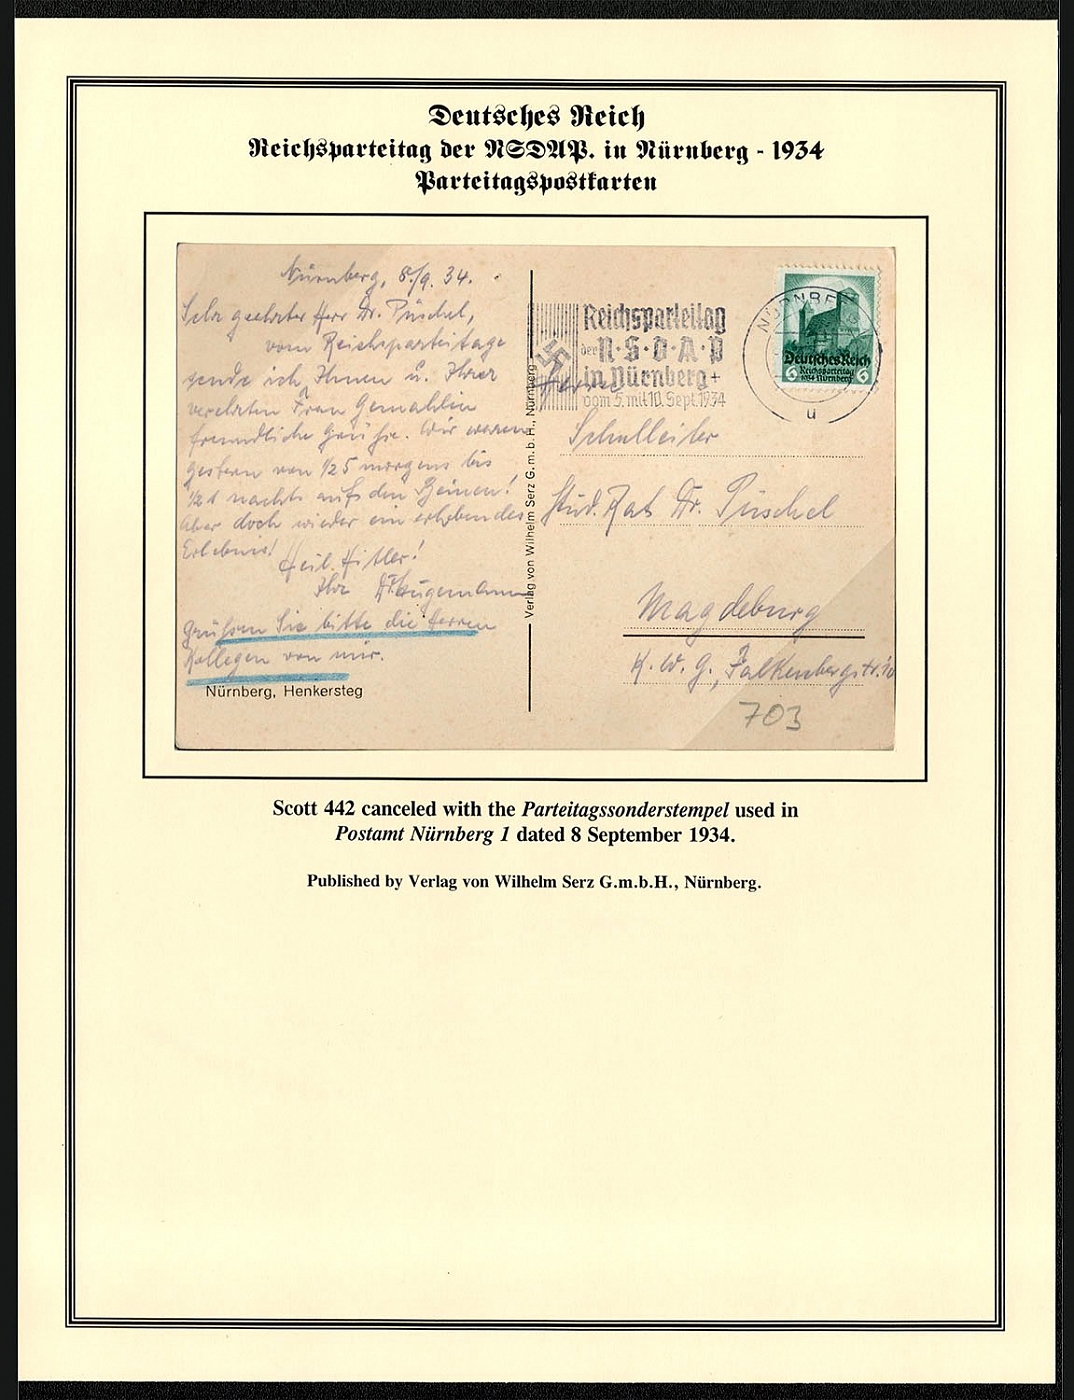 Deutsches Reich
Reichsparteitag der NSDAP. in Nürnberg - 1934
Parteitagspostkarten
Nürnberg, 8./9. 34.
Sehr geehrter Herr Dr. Püschel,
vom Reichsparteitage
sende ich Ihnen u. Ihrer
verehrten Frau Gemahlin
freundliche Grüße. Wir waren
gestern von 1/2 5 morgens bis
1/2 1 nachts auf den Beinen!
Aber doch wieder ein erhebendes
Erlebnis!
Heil Hitler!
Ihr
Grüßen Sie bitte die Herren
Kollegen von mir.
Nürnberg, Henkersteg
Verlag von Wilhelm Serz G.m.b.H., Nürnberg
Reichsparteitag
der N·S·D·A·P
in Nürnberg
vom 5. mit 10. Sept. 1934
NÜRNBERG
u
Deutsches Reich
6 Reichsparteitag 6
1934 Nürnberg
Herrn
Schulleiter
Stud. Rat Dr. Püschel
Magdeburg
K. W. G., Falkenbergstr. 10
703
Scott 442 canceled with the Parteitagssonderstempel used in
Postamt Nürnberg 1 dated 8 September 1934.
Published by Verlag von Wilhelm Serz G.m.b.H., Nürnberg.